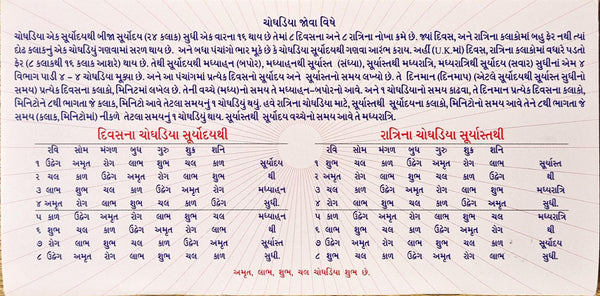 ચોઘડિયા જોવા વિષે
ચોઘડિયા એક સૂર્યોદયથી બીજા સૂર્યોદય (૨૪ કલાક) સુધી એક વારના ૧૬ થાય છે તેમાં ૮ દિવસના અને ૮ રાત્રિના નોખા ક્રમે છે. જ્યાં દિવસ, અને રાત્રિના કલાકોમાં બહુ ફેર નથી ત્યાં
દોઢ કલાકનું એક ચોઘડિયું ગણવામાં સરળ થાય છે. અને બધા પંચાગો ભાર મૂકે છે કે ચોઘડિયા સૂર્યોદયથી ગણવા આરંભ કરાય. અહીં (U.K.માં) દિવસ, રાત્રિના કલાકોમાં વધારે પડતો
ફેર (૮ કલાકથી ૧૬ કલાક આશરે) થાય છે. તેથી સૂર્યોદયથી મધ્યાહ્ન (બપોર), મધ્યાહ્નથી સૂર્યાસ્ત (સંધ્યા), સૂર્યાસ્તથી મધ્યરાત્રિ, મધ્યરાત્રિથી સૂર્યોદય (સવાર) સુધીનાં એમ ૪
વિભાગ પાડી ૪ – ૪ ચોઘડિયા મૂક્યા છે. અને આ પંચાગમાં પ્રત્યેક દિવસનો સૂર્યોદય અને સૂર્યાસ્તનો સમય લખ્યો છે. તે દિનમાન (દિનમાપ) (એટલે સૂર્યોદયથી સૂર્યાસ્ત સુધીનો
સમય) પ્રત્યેક દિવસના કલાક, મિનિટમાં લખેલ છે. તેની વચ્ચે (મધ્ય)નો સમય તે મધ્યાહ્ન–બપોરનો આવે. અને ૧ ચોઘડિયાનો સમય કાઢવા, તે દિનમાન પ્રત્યેક દિવસના કલાકો,
મિનિટોને ૮થી ભાગતા જે કલાક, મિનિટો આવે તેટલા સમયનું ૧ ચોઘડિયું થયું. હવે રાત્રિના ચોઘડિયા માટે, સૂર્યાસ્તથી સૂર્યોદયના કલાકો, મિનિટોનો સમય આવે તેને ૮થી ભાગતા જે
સમય (કલાક, મિનિટોમાં) નીકળે તેટલા સમયનું ૧ ચોઘડિયા થાય. સૂર્યાસ્તથી સૂર્યોદય વચ્ચેનો સમય આવે તે મધ્યરાત્રિ.
દિવસના ચોઘડિયા સૂર્યોદયથી
રવિ સોમ મંગળ બુધ ગુરુ શુક્ર શનિ
૧ ઉદ્વેગ અમૃત રોગ લાભ શુભ ચલ કાળ સૂર્યોદય
૨ ચલ કાળ ઉદ્વેગ અમૃત રોગ લાભ શુભ થી
૩ લાભ શુભ ચલ કાળ ઉદ્વેગ અમૃત રોગ મધ્યાહ્ન
૪ અમૃત રોગ લાભ શુભ ચલ કાળ ઉદ્વેગ સુધી.
૫ કાળ ઉદ્વેગ અમૃત રોગ લાભ શુભ ચલ મધ્યાહ્ન
૬ શુભ ચલ કાળ ઉદ્વેગ અમૃત રોગ લાભ થી
૭ રોગ લાભ શુભ ચલ કાળ ઉદ્વેગ અમૃત સૂર્યાસ્ત
૮ ઉદ્વેગ અમૃત રોગ લાભ શુભ ચલ કાળ સુધી.
રાત્રિના ચોઘડિયા સૂર્યાસ્તથી
રવિ સોમ મંગળ બુધ ગુરુ શુક્ર શનિ
૧ શુભ ચલ કાળ ઉદ્વેગ અમૃત રોગ લાભ સૂર્યાસ્ત
૨ અમૃત રોગ લાભ શુભ ચલ કાળ ઉદ્વેગ થી
૩ ચલ કાળ ઉદ્વેગ અમૃત રોગ લાભ શુભ મધ્યરાત્રિ
૪ રોગ લાભ શુભ ચલ કાળ ઉદ્વેગ અમૃત સુધી.
૫ કાળ ઉદ્વેગ અમૃત રોગ લાભ શુભ ચલ મધ્યરાત્રિ
૬ લાભ શુભ ચલ કાળ ઉદ્વેગ અમૃત રોગ થી
૭ ઉદ્વેગ અમૃત રોગ લાભ શુભ ચલ કાળ સૂર્યોદય
૮ શુભ ચલ કાળ ઉદ્વેગ અમૃત રોગ લાભ સુધી.
અમૃત, લાભ, શુભ, ચલ ચોઘડિયા શુભ છે.